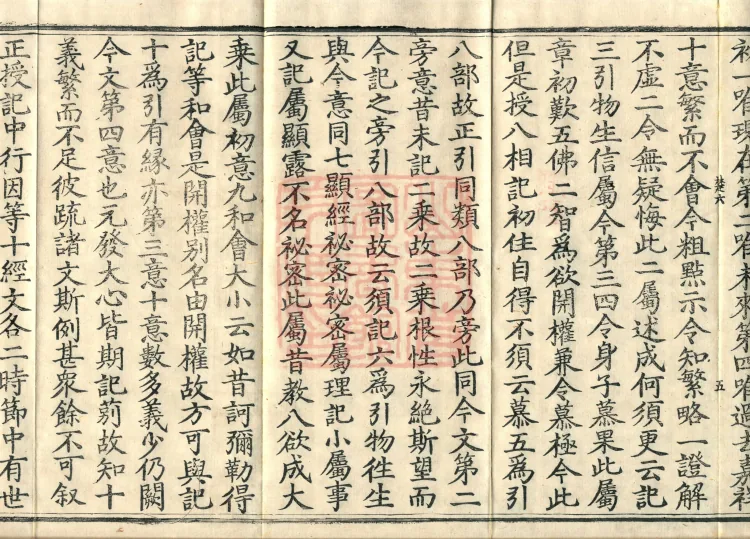 初一唯現在第二唯未來第四唯過去嘉祥
十意繁而不會今粗點示令知繁略一證解
不虛二令無疑悔此二屬述成何須更云記
三引物生信屬今第三四令身子慕果此屬
章初歎五佛二智為欲開權兼令慕極今此
但是授八相記初住自得不須云慕五為引
楚六
五
八部故正引同類八部乃旁此同今文第二
旁意昔未記二乘故二乘根性永絕斯望而
今記之旁引八部故云須記六為引物往生
與今意同七顯經祕密祕密屬理記小屬事
又記屬顯露不名祕密此屬昔教八欲成大
乘此屬初意九和會大小云如昔訶彌勒得
記等和會是開權別名由開權故方可與記
十為引有緣亦第三意十意數多義少仍闕
今文第四意也元發大心皆期記莂故知十
義繁而不足彼疏諸文斯例甚眾餘不可叙
正授記中行因等十經文各二時節中有世